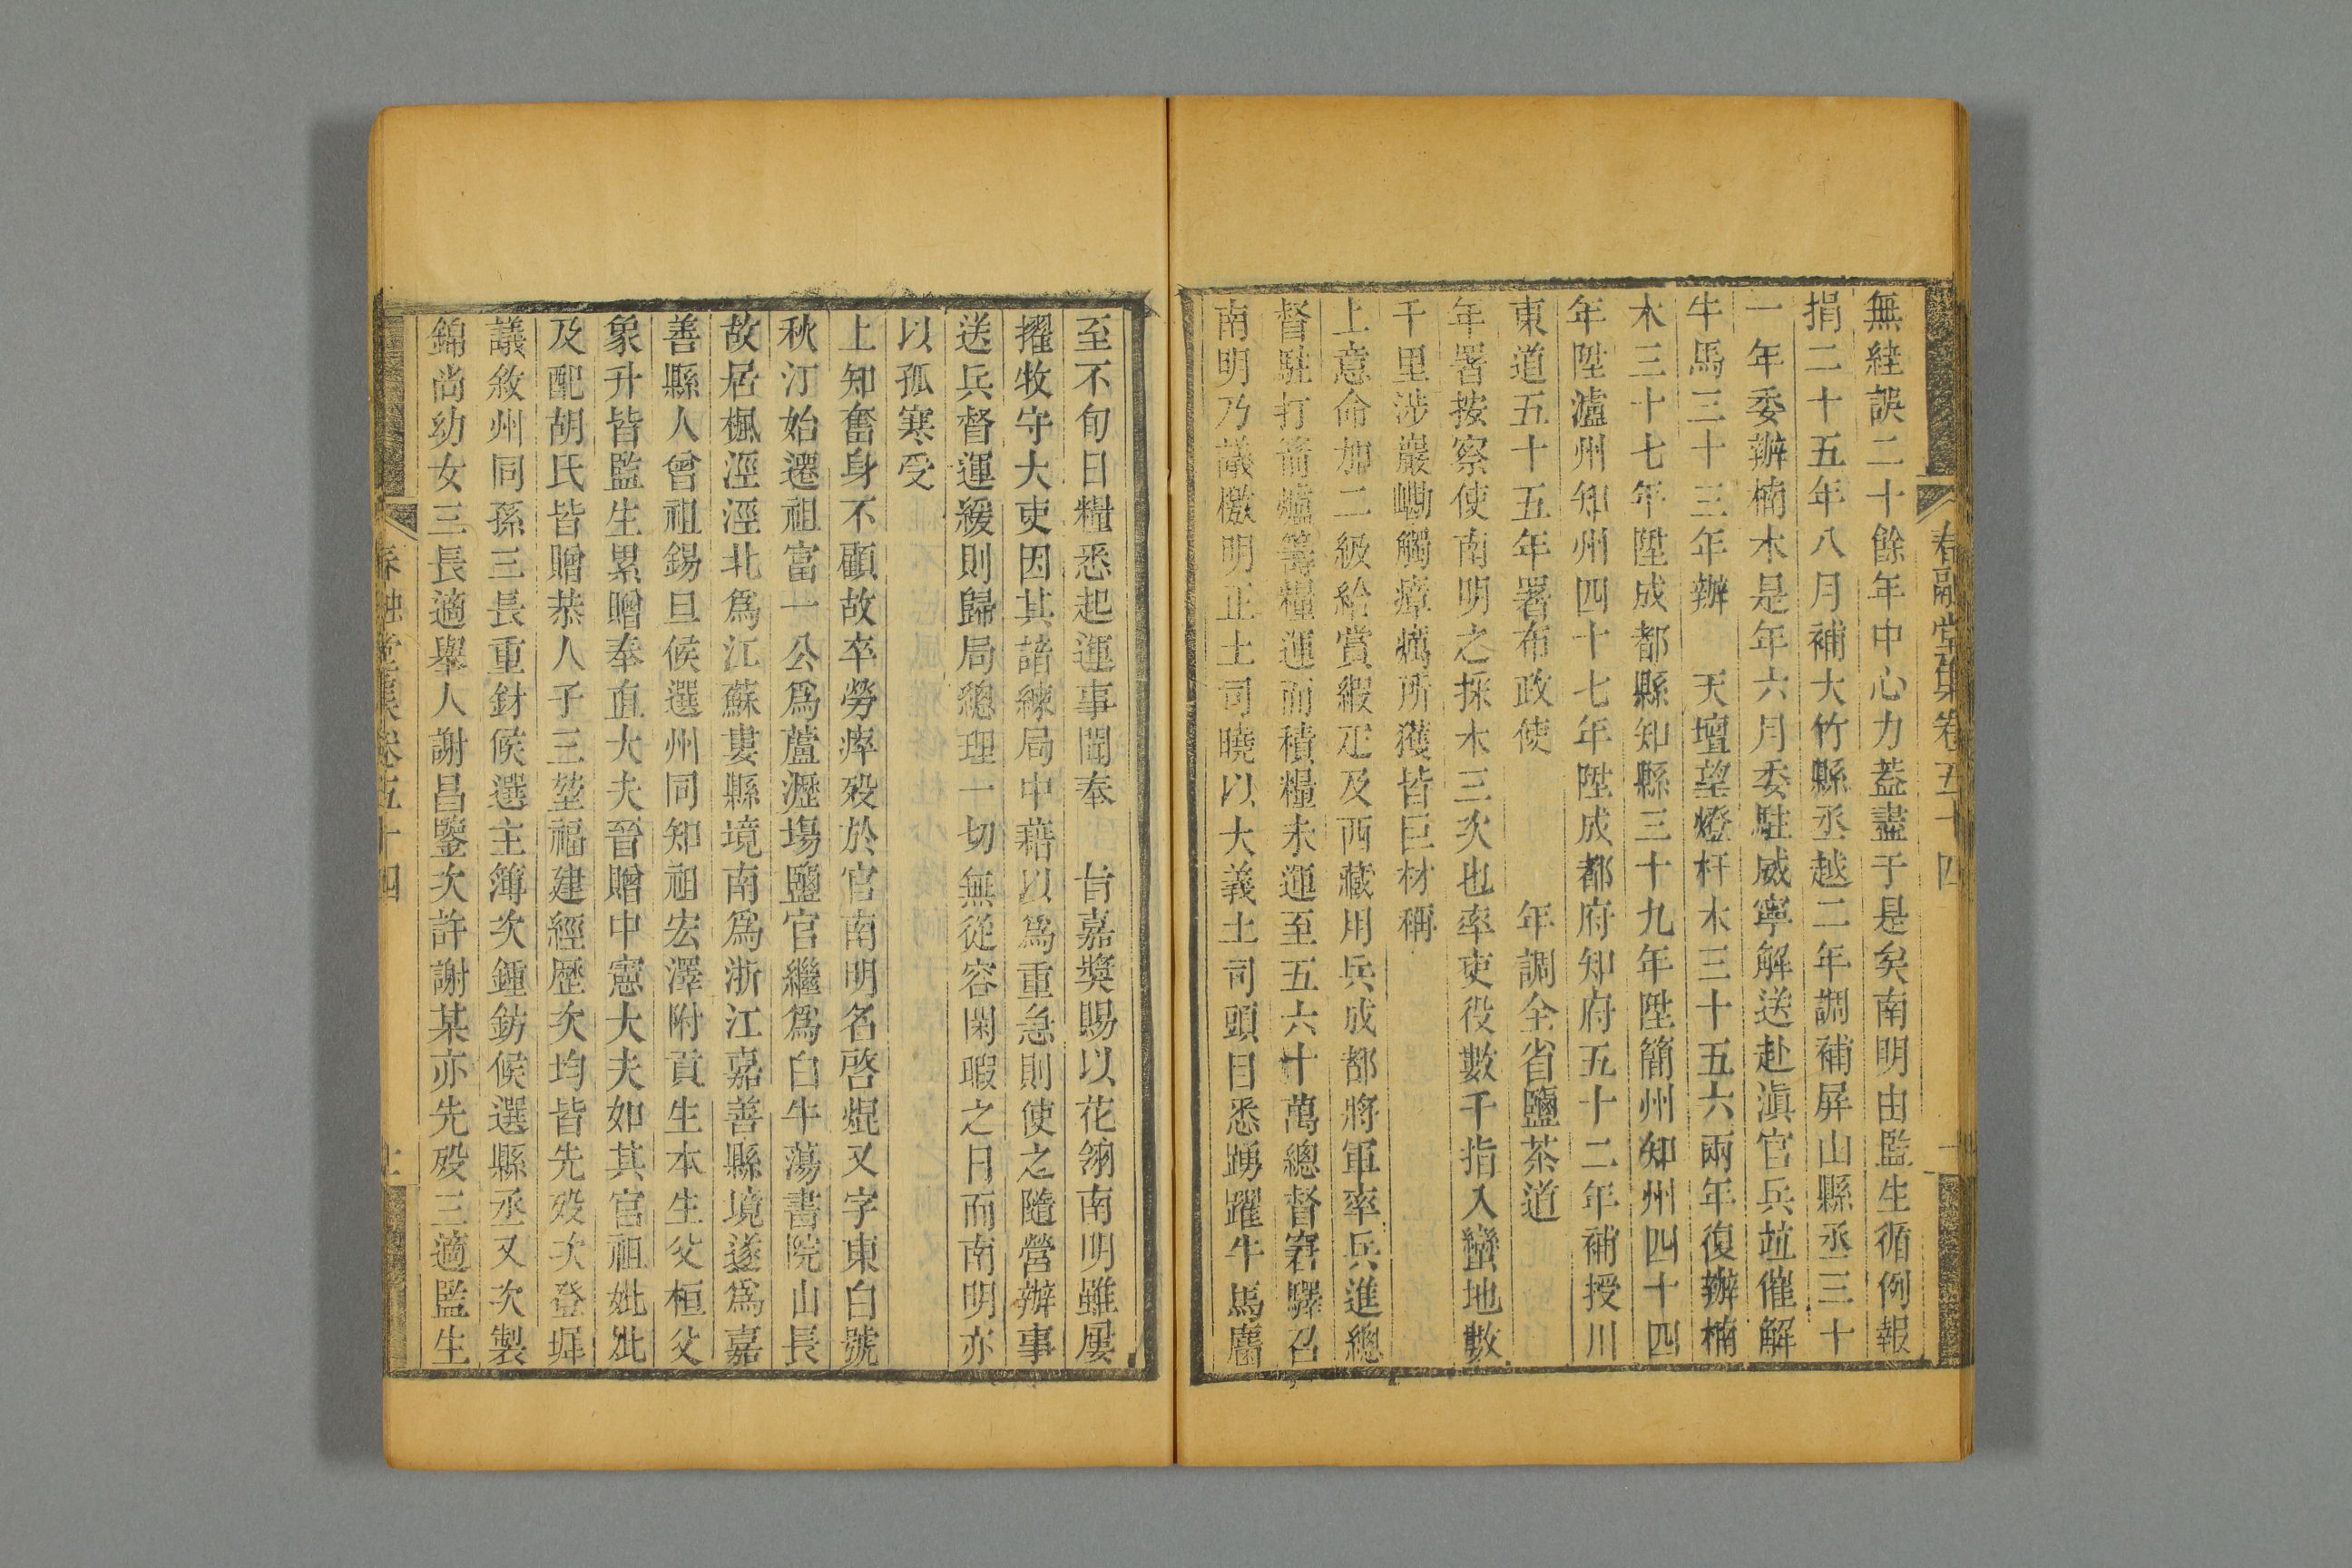 春融堂集卷五十四
無絓誤二十餘年中心力蓋盡于是矣南明由監生循例報
捐二十五年八月補大竹縣丞越二年調補屏山縣丞三十
一年委辦楠木是年六月委駐威寧解送赴滇官兵並催解
牛馬三十三年辦 天壇望燈杆木三十五六兩年復辦楠
木三十七年陞成都縣知縣三十九年陞簡州知州四十四
年陞瀘州知州四十七年陞成都府知府五十二年補授川
東道五十五年署布政使 年調全省鹽茶道
年署按察使南明之採木三次也率吏役數千指入蠻地數
千里涉巖嶇觸瘴癘所獲皆巨材稱
上意命加二級給賞緞疋及西藏用兵成都將軍率兵進總
督駐打箭爐籌糧運而積糧未運至五六十萬總督窘驛召
南明乃議檄明正土司曉以大義土司頭目悉踴躍牛馬麕
至不旬日糧悉起運事聞奉 旨嘉獎賜以花翎南明雖屢
擢牧守大吏因其諳練局中藉以為重急則使之隨營辦事
送兵督運緩則歸局總理一切無從容閑暇之日而南明亦
以孤寒受
上知奮身不顧故卒勞瘁歿於官南明名啓焜又字東白號
秋汀始遷祖富一公爲蘆瀝場鹽官繼爲白牛蕩書院山長
故居楓涇涇北爲江蘇婁縣境南爲浙江嘉善縣境遂爲嘉
善縣人曾祖錫旦候選州同知祖宏澤附貢生本生父桓父
象升皆監生累贈奉直大夫晉贈中憲大夫如其官祖妣妣
及配胡氏皆贈恭人子三堃福建經歷次均皆先歿次登墀
議敘州同孫三長重釮候選主簿次鍾鈁候選縣丞又次製
錦尚幼女三長適舉人謝昌鑒次許謝某亦先歿三適監生
春融堂集卷五十四